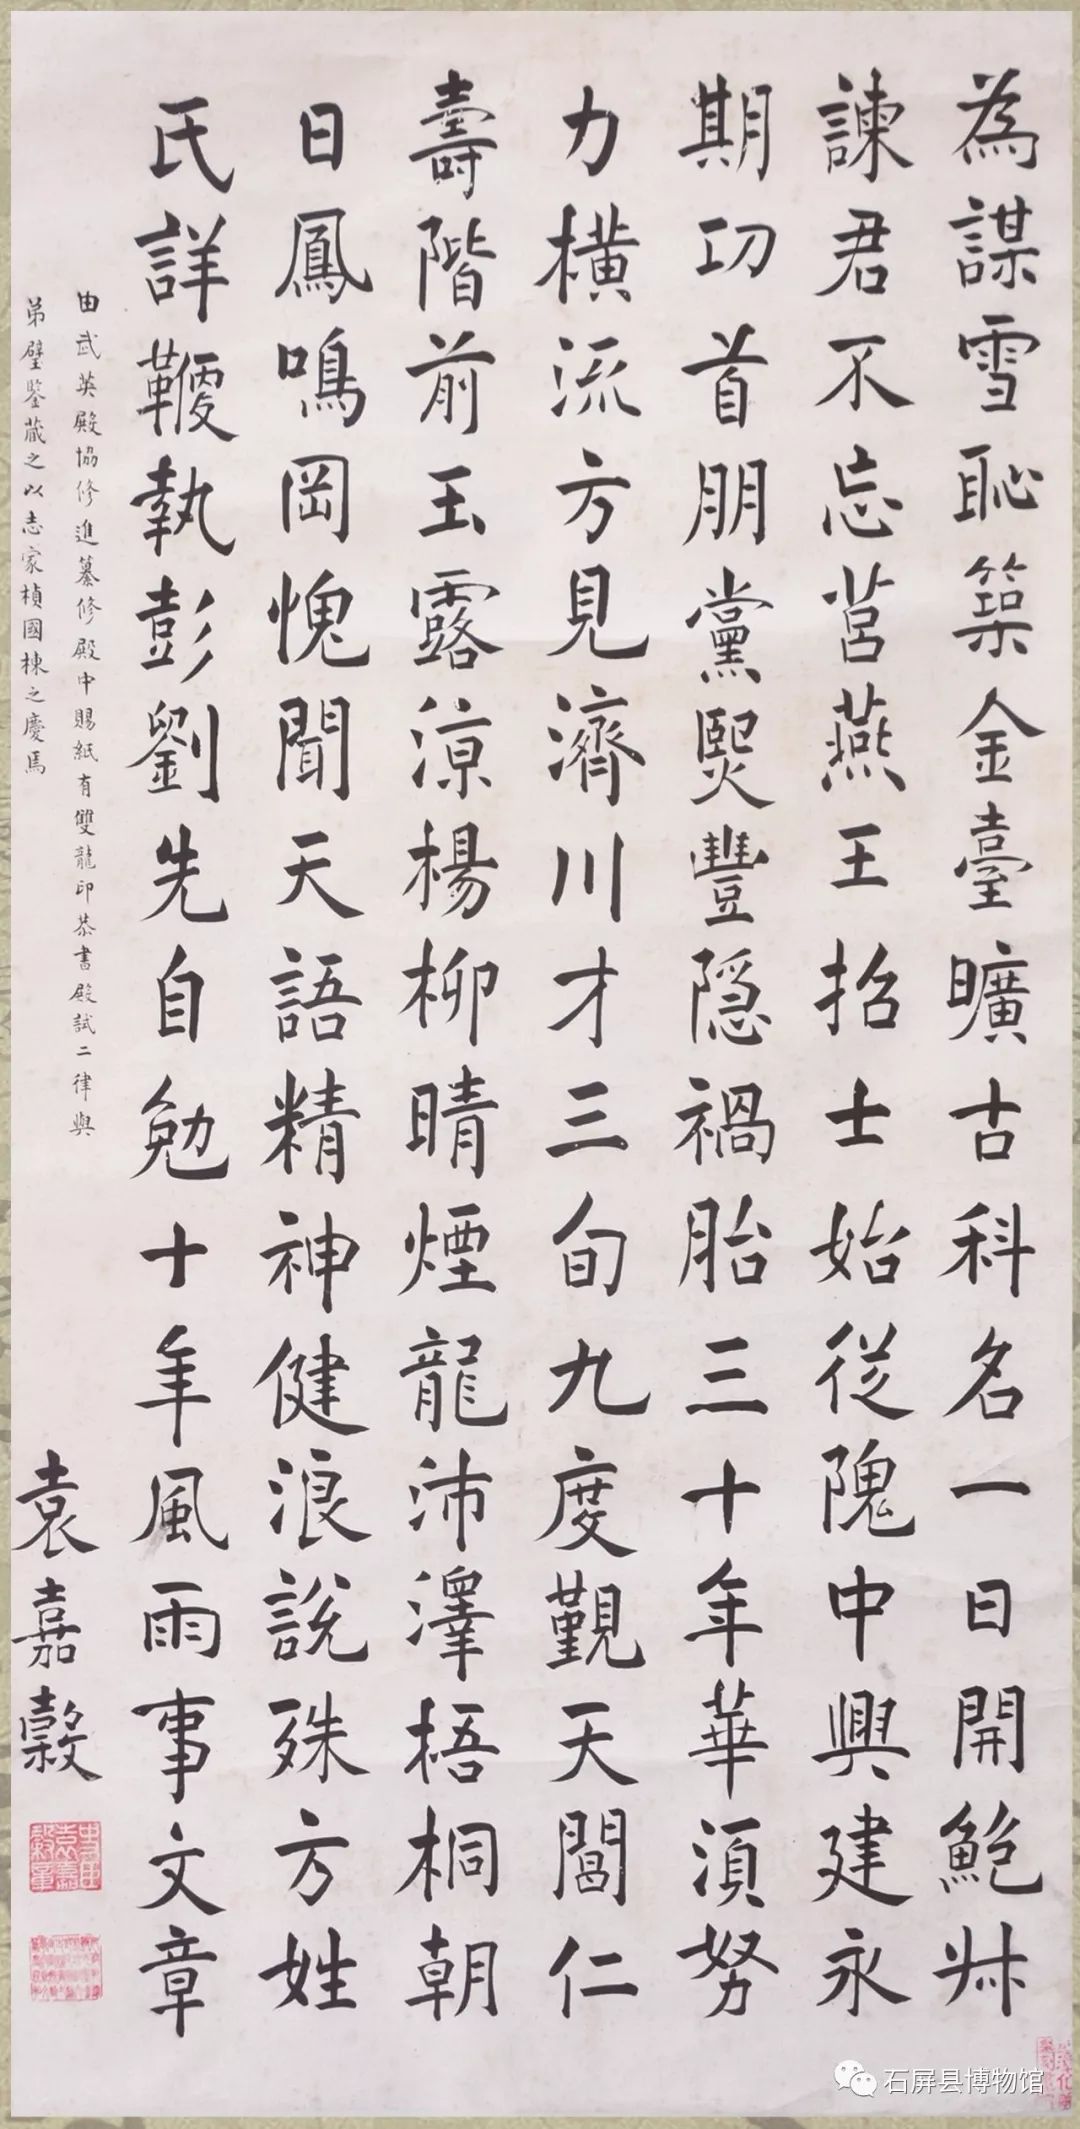 為謀雪恥築金臺曠古科名一日開鮑叔
諫君不忘莒燕王招士始從隗中興建永
期功首朋黨熙豐隱禍胎三十年華須努
力橫流方見濟川才三旬九度觀天閶仁
壽階前玉露涼楊柳晴煙龍沛澤梧桐朝
日鳳鳴岡愧聞天語精神健浪說殊方姓
氏詳鞭執彭劉先自勉十年風雨事文章
由武英殿協修進纂修殿中賜紙有雙龍印恭書殿試二律與
弟璧鑒藏之以志家楨國棟之慶焉
袁嘉穀
石屏县博物馆